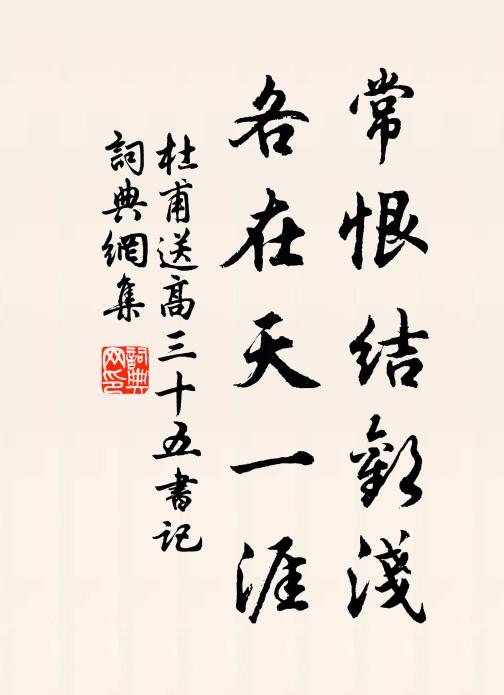 常恨结歡淺
各在天一涯
杜甫送高三十五書记
詞典網集
詞典网印